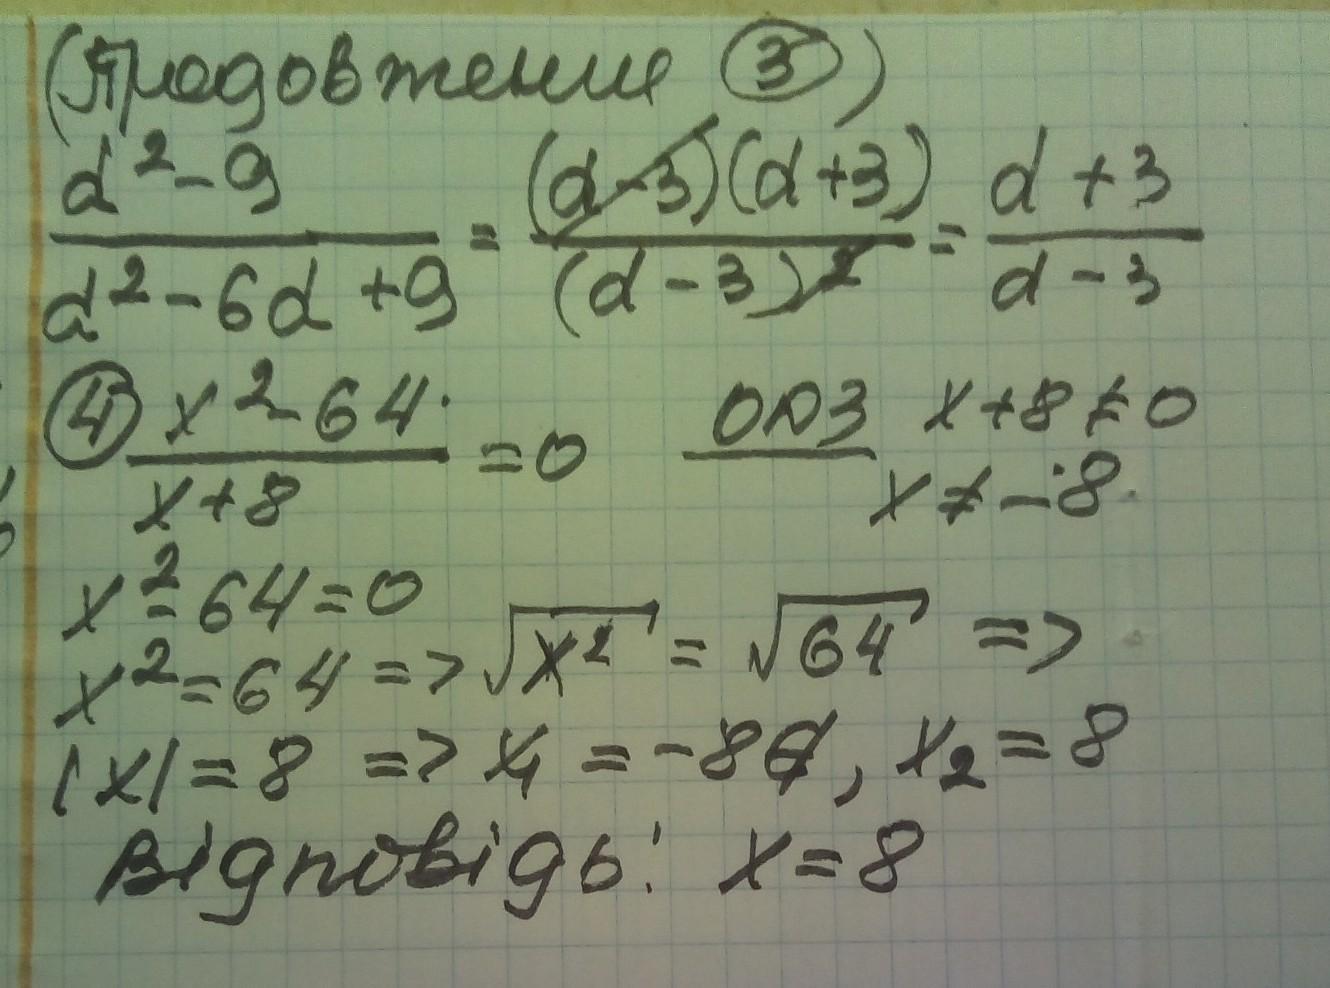 (Продовження ③)
d² - 9 / d² - 6d + 9 = (d - 3)(d + 3) / (d - 3)² = d + 3 / d - 3
④ x² - 64 / x + 8 = 0 ОДЗ x + 8 ≠ 0
x ≠ -8
x² - 64 = 0
x² = 64 => √x² = √64 =>
|x| = 8 => x₁ = -8∉, x₂ = 8
Відповідь: x = 8